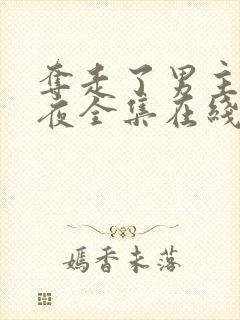 奪走了男主
夜全集在綫
嫣香未落